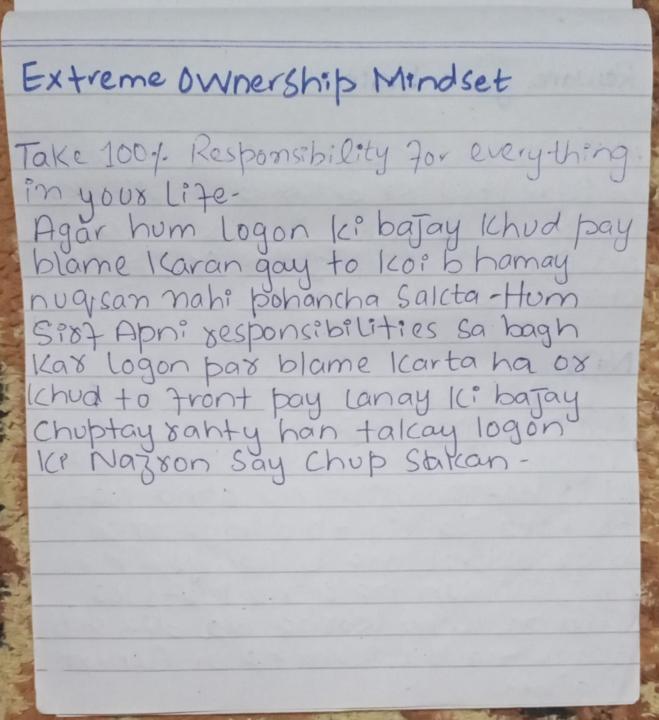 Extreme Ownership Mindset
Take 100% Responsibility for everything
in your life-
Agar hum logon ki bajay Khud pay
blame Karan gay to koi b hamay
nuqsan nahi pohancha Sakta - Hum
Sirf Apni responsibilities sa bagh
Kar logon par blame karta ha or
Khud to front pay lanay ki bajay
Chuptay rahty han takay logon
ki Nazron Say Chup Sakan -